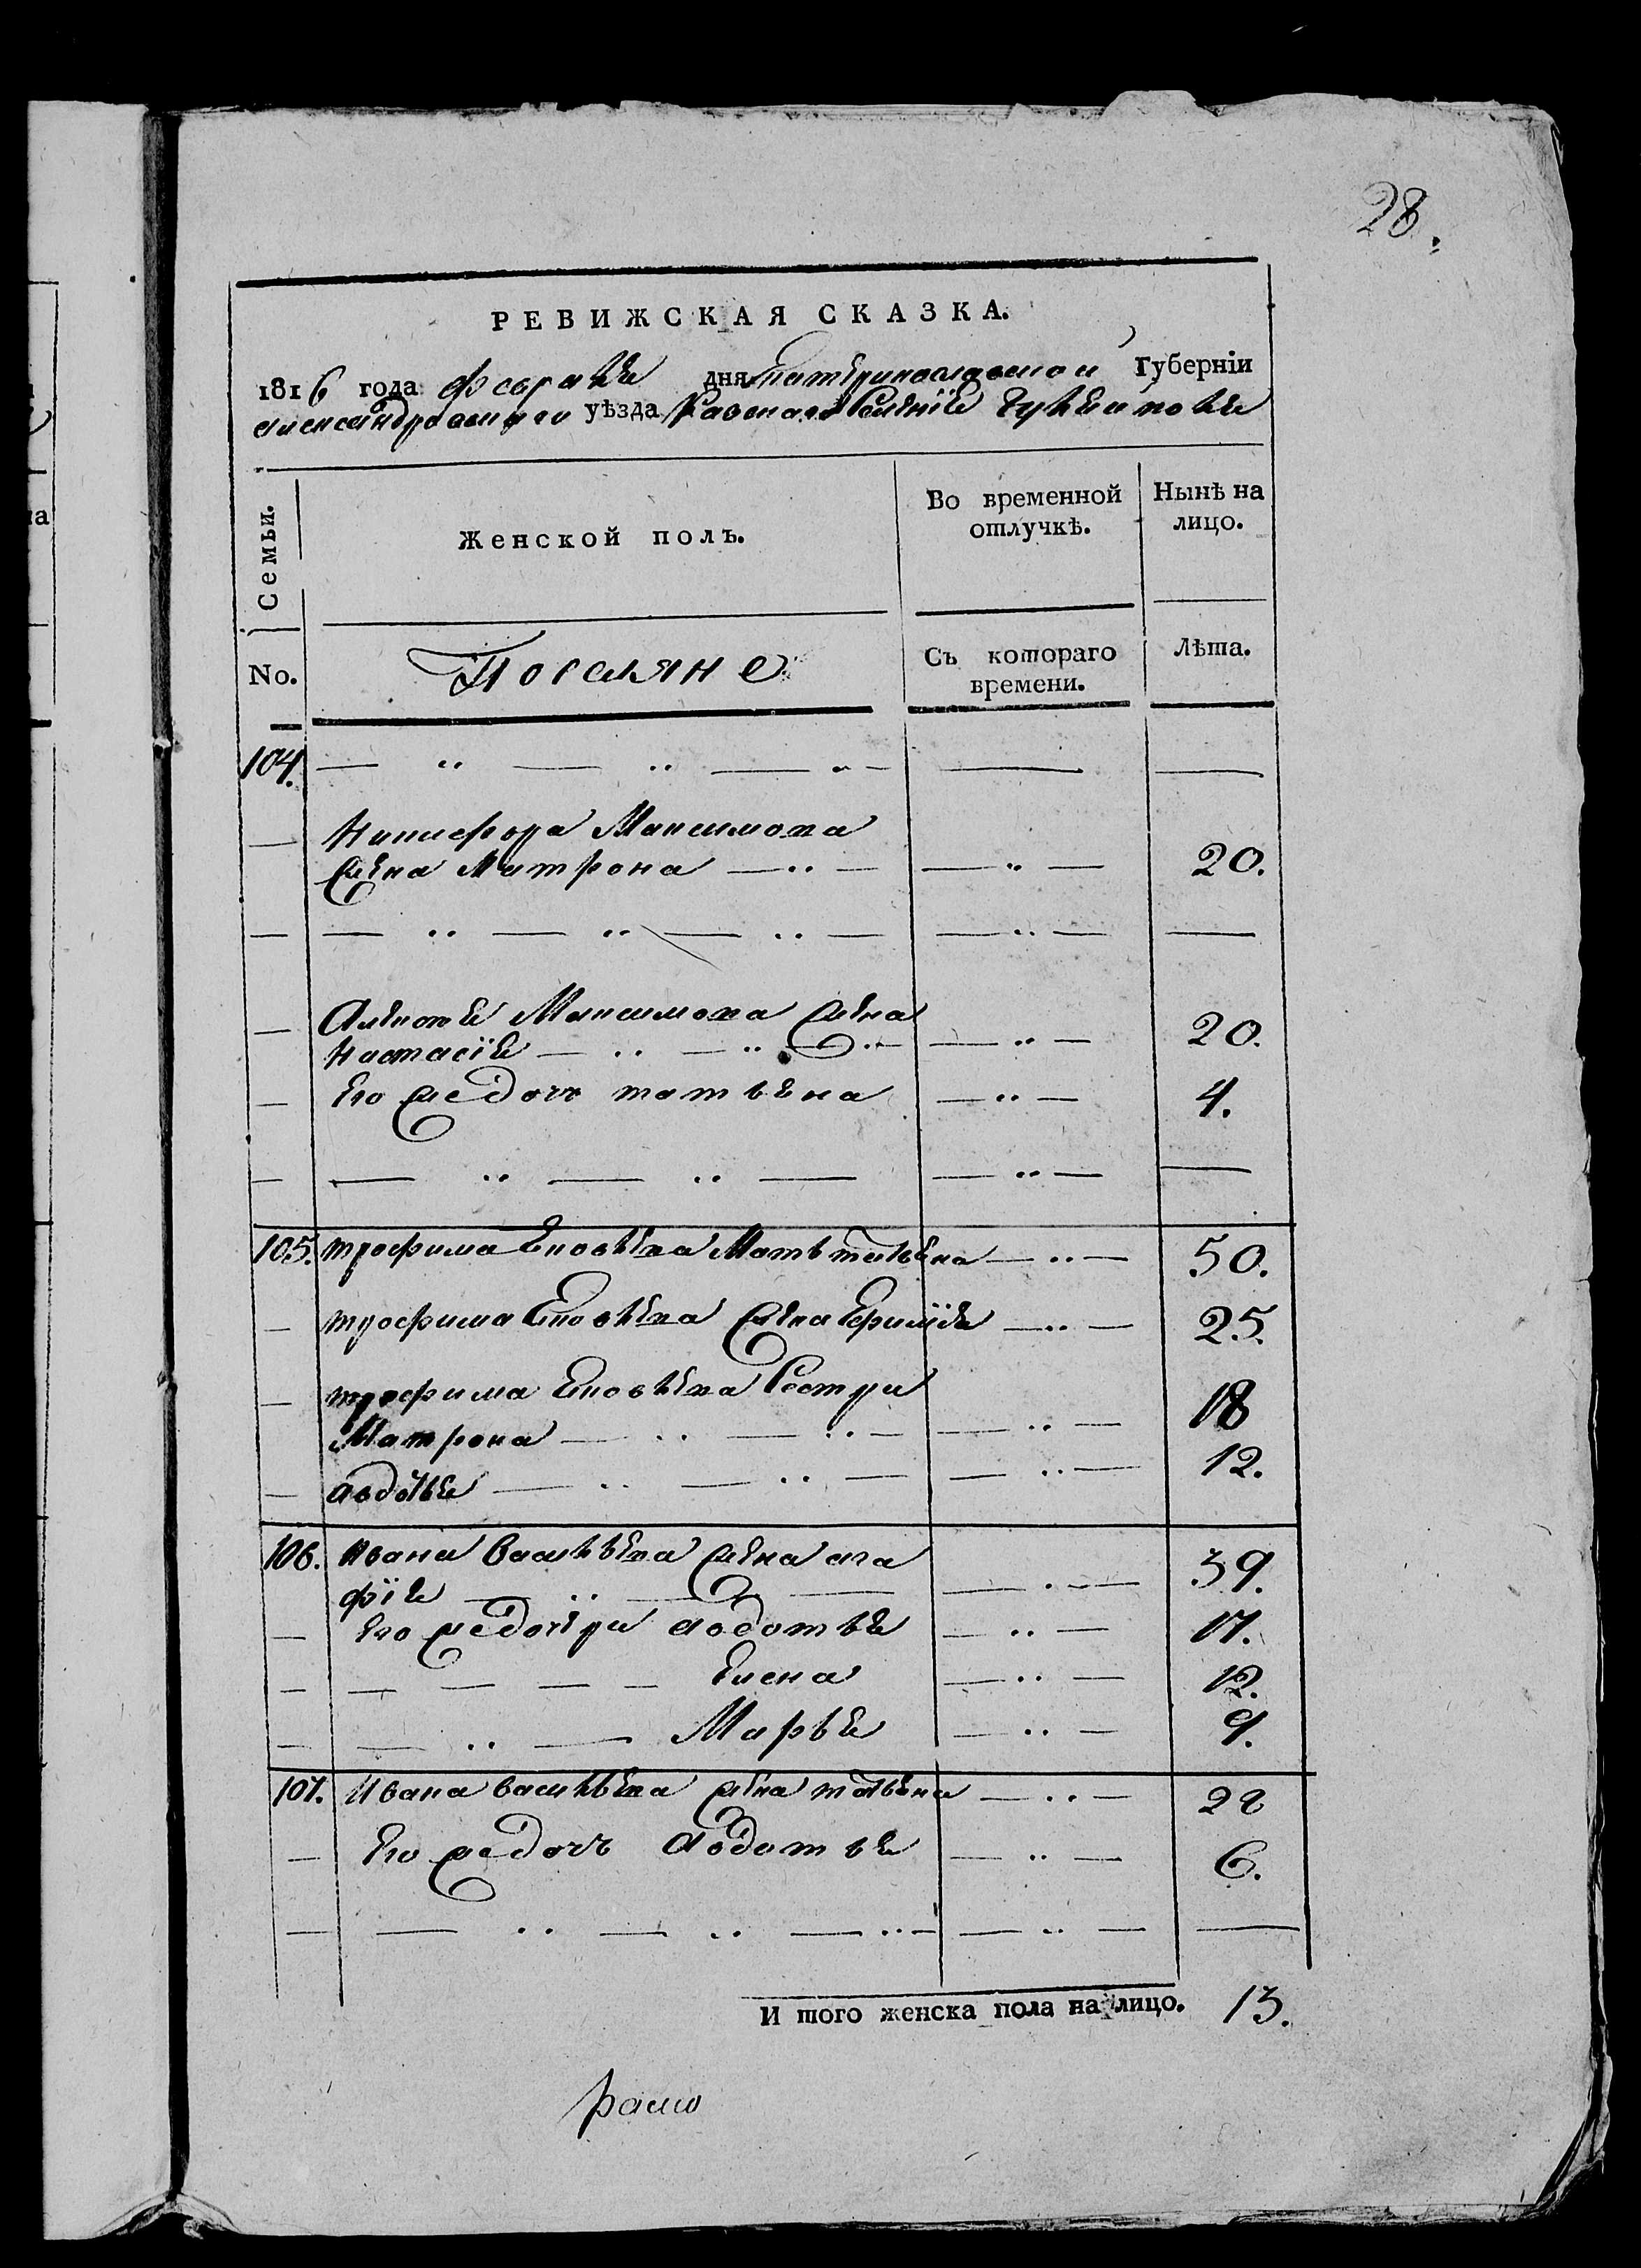 28.
РЕВИЖСКАЯ СКАЗКА.
1816 года февраля дня Екатеринославской Губерніи
александровскаго уѣзда Казенаго Селенія
Семьи.
Женской полъ.
Во временной
отлучкѣ.
Нынѣ на
лицо.
No.
Поселяне
Съ котораго
времени.
Лѣта.
104.
Никифора Максимова
жена Матрона 20.
Алексея Максимова жена
Настасія 20.
Его же дочь татьяна 4.
105. трофима Яковлева Мать татьяна 50.
трофима Яковлева жена 25.
трофима Яковлева Сестры
Матрона 18
авдотья 12.
106. ивана Васильева жена ага
фія 39.
Его же дочери авдотья 17.
Елена 12.
Марья 9.
107. Ивана васильева жена татьяна 22
Его же дочь авдотья 6.
И того женска пола на лицо. 13.